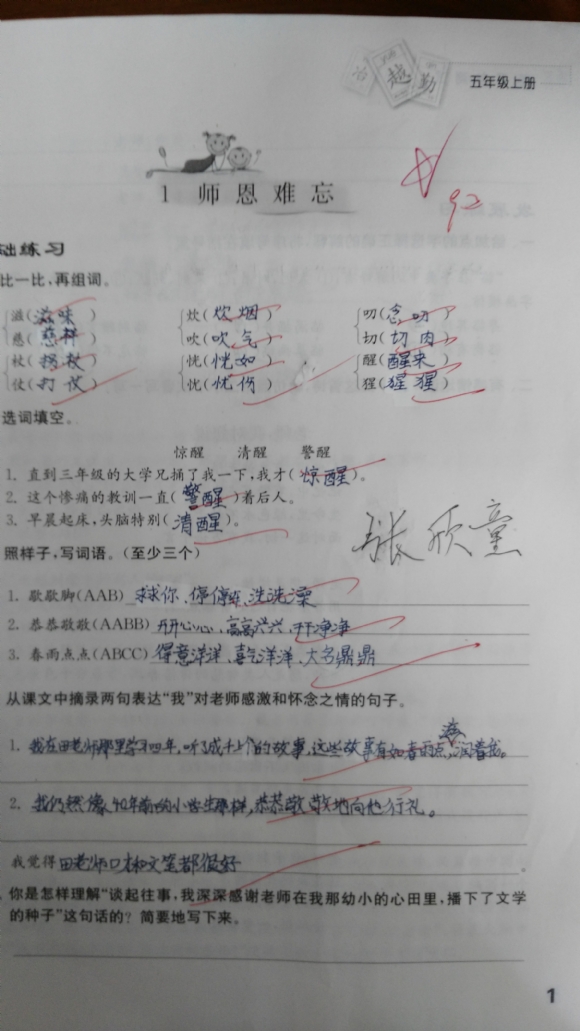 治 越 勤
五年级上册
1 师恩难忘
92
础练习
比一比,再组词。
滋(滋味) 炊(炊烟) 叨(念叨)
慈(慈祥) 吹(吹气) 切(切肉)
杖(拐杖) 恍(恍如) 醒(醒来)
仗(打仗) 忧(忧伤) 猩(猩猩)
选词填空。
惊醒 清醒 警醒
1. 直到三年级的大学兄捅了我一下,我才(惊醒)。
2. 这个惨痛的教训一直(警醒)着后人。
3. 早晨起床,头脑特别(清醒)。
张欣童
照样子,写词语。(至少三个)
1. 歇歇脚(AAB) 求求你、停停车、洗洗澡
2. 恭恭敬敬(AABB) 开开心心、高高兴兴、干干净净
3. 春雨点点(ABCC) 得意洋洋、喜气洋洋、大名鼎鼎
从课文中摘录两句表达“我”对老师感激和怀念之情的句子。
1. 我在田老师那里学习四年,听了成千上个的故事,这些故事有如春雨点点,润着我。
2. 我仍然像40年前的小学生那样,恭恭敬敬地向他行礼。
我觉得田老师口才和文笔都很好。
你是怎样理解“谈起往事,我深深感谢老师在我那幼小的心田里,播下了文学
的种子”这句话的? 简要地写下来。
1